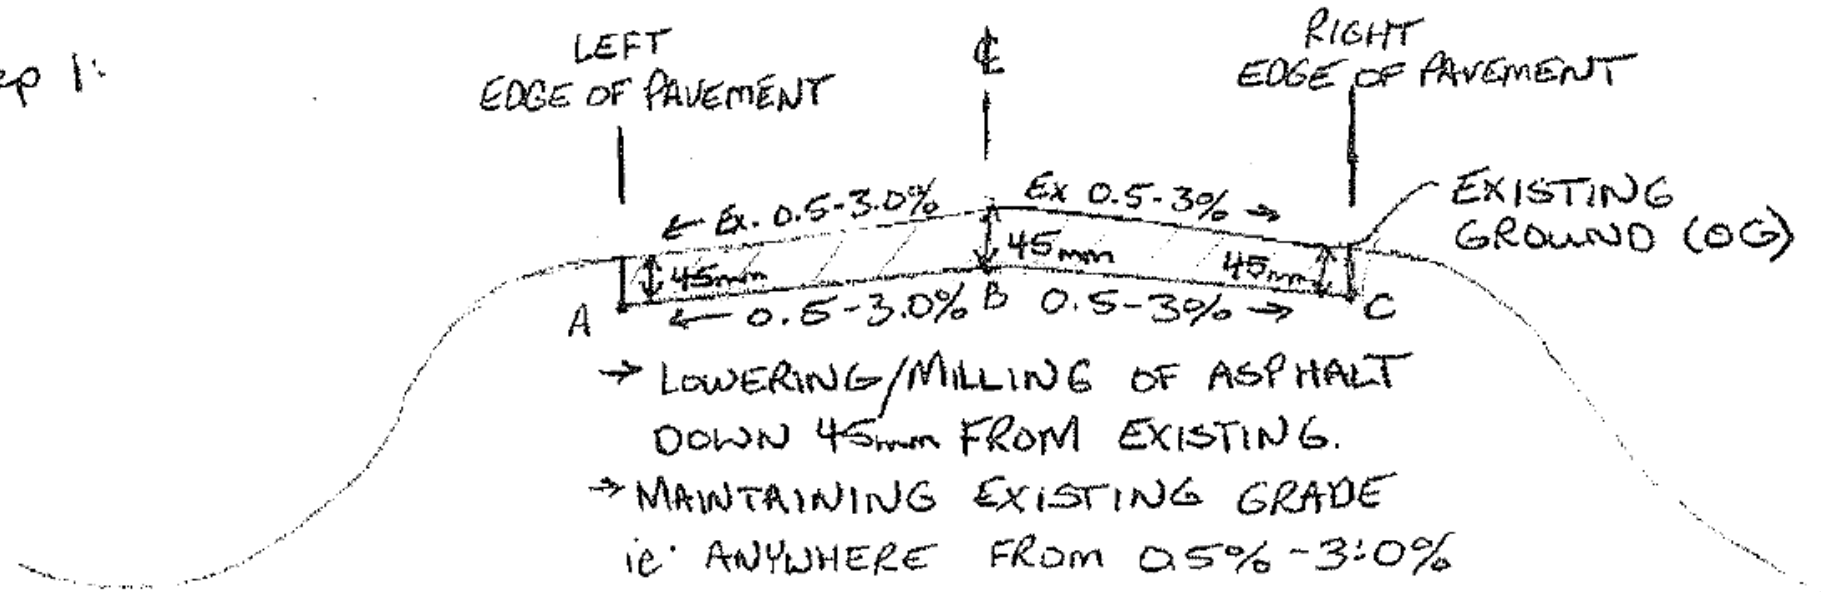 ep 1:
LEFT
EDGE OF PAVEMENT
℄
RIGHT
EDGE OF PAVEMENT
← Ex. 0.5-3.0%
Ex 0.5-3% →
EXISTING
GROUND (OG)
45mm
45mm
45mm
A
← 0.5-3.0%
B
0.5-3% →
C
→ LOWERING/MILLING OF ASPHALT
DOWN 45mm FROM EXISTING.
→ MAINTAINING EXISTING GRADE
ie. ANYWHERE FROM 0.5%-3.0%